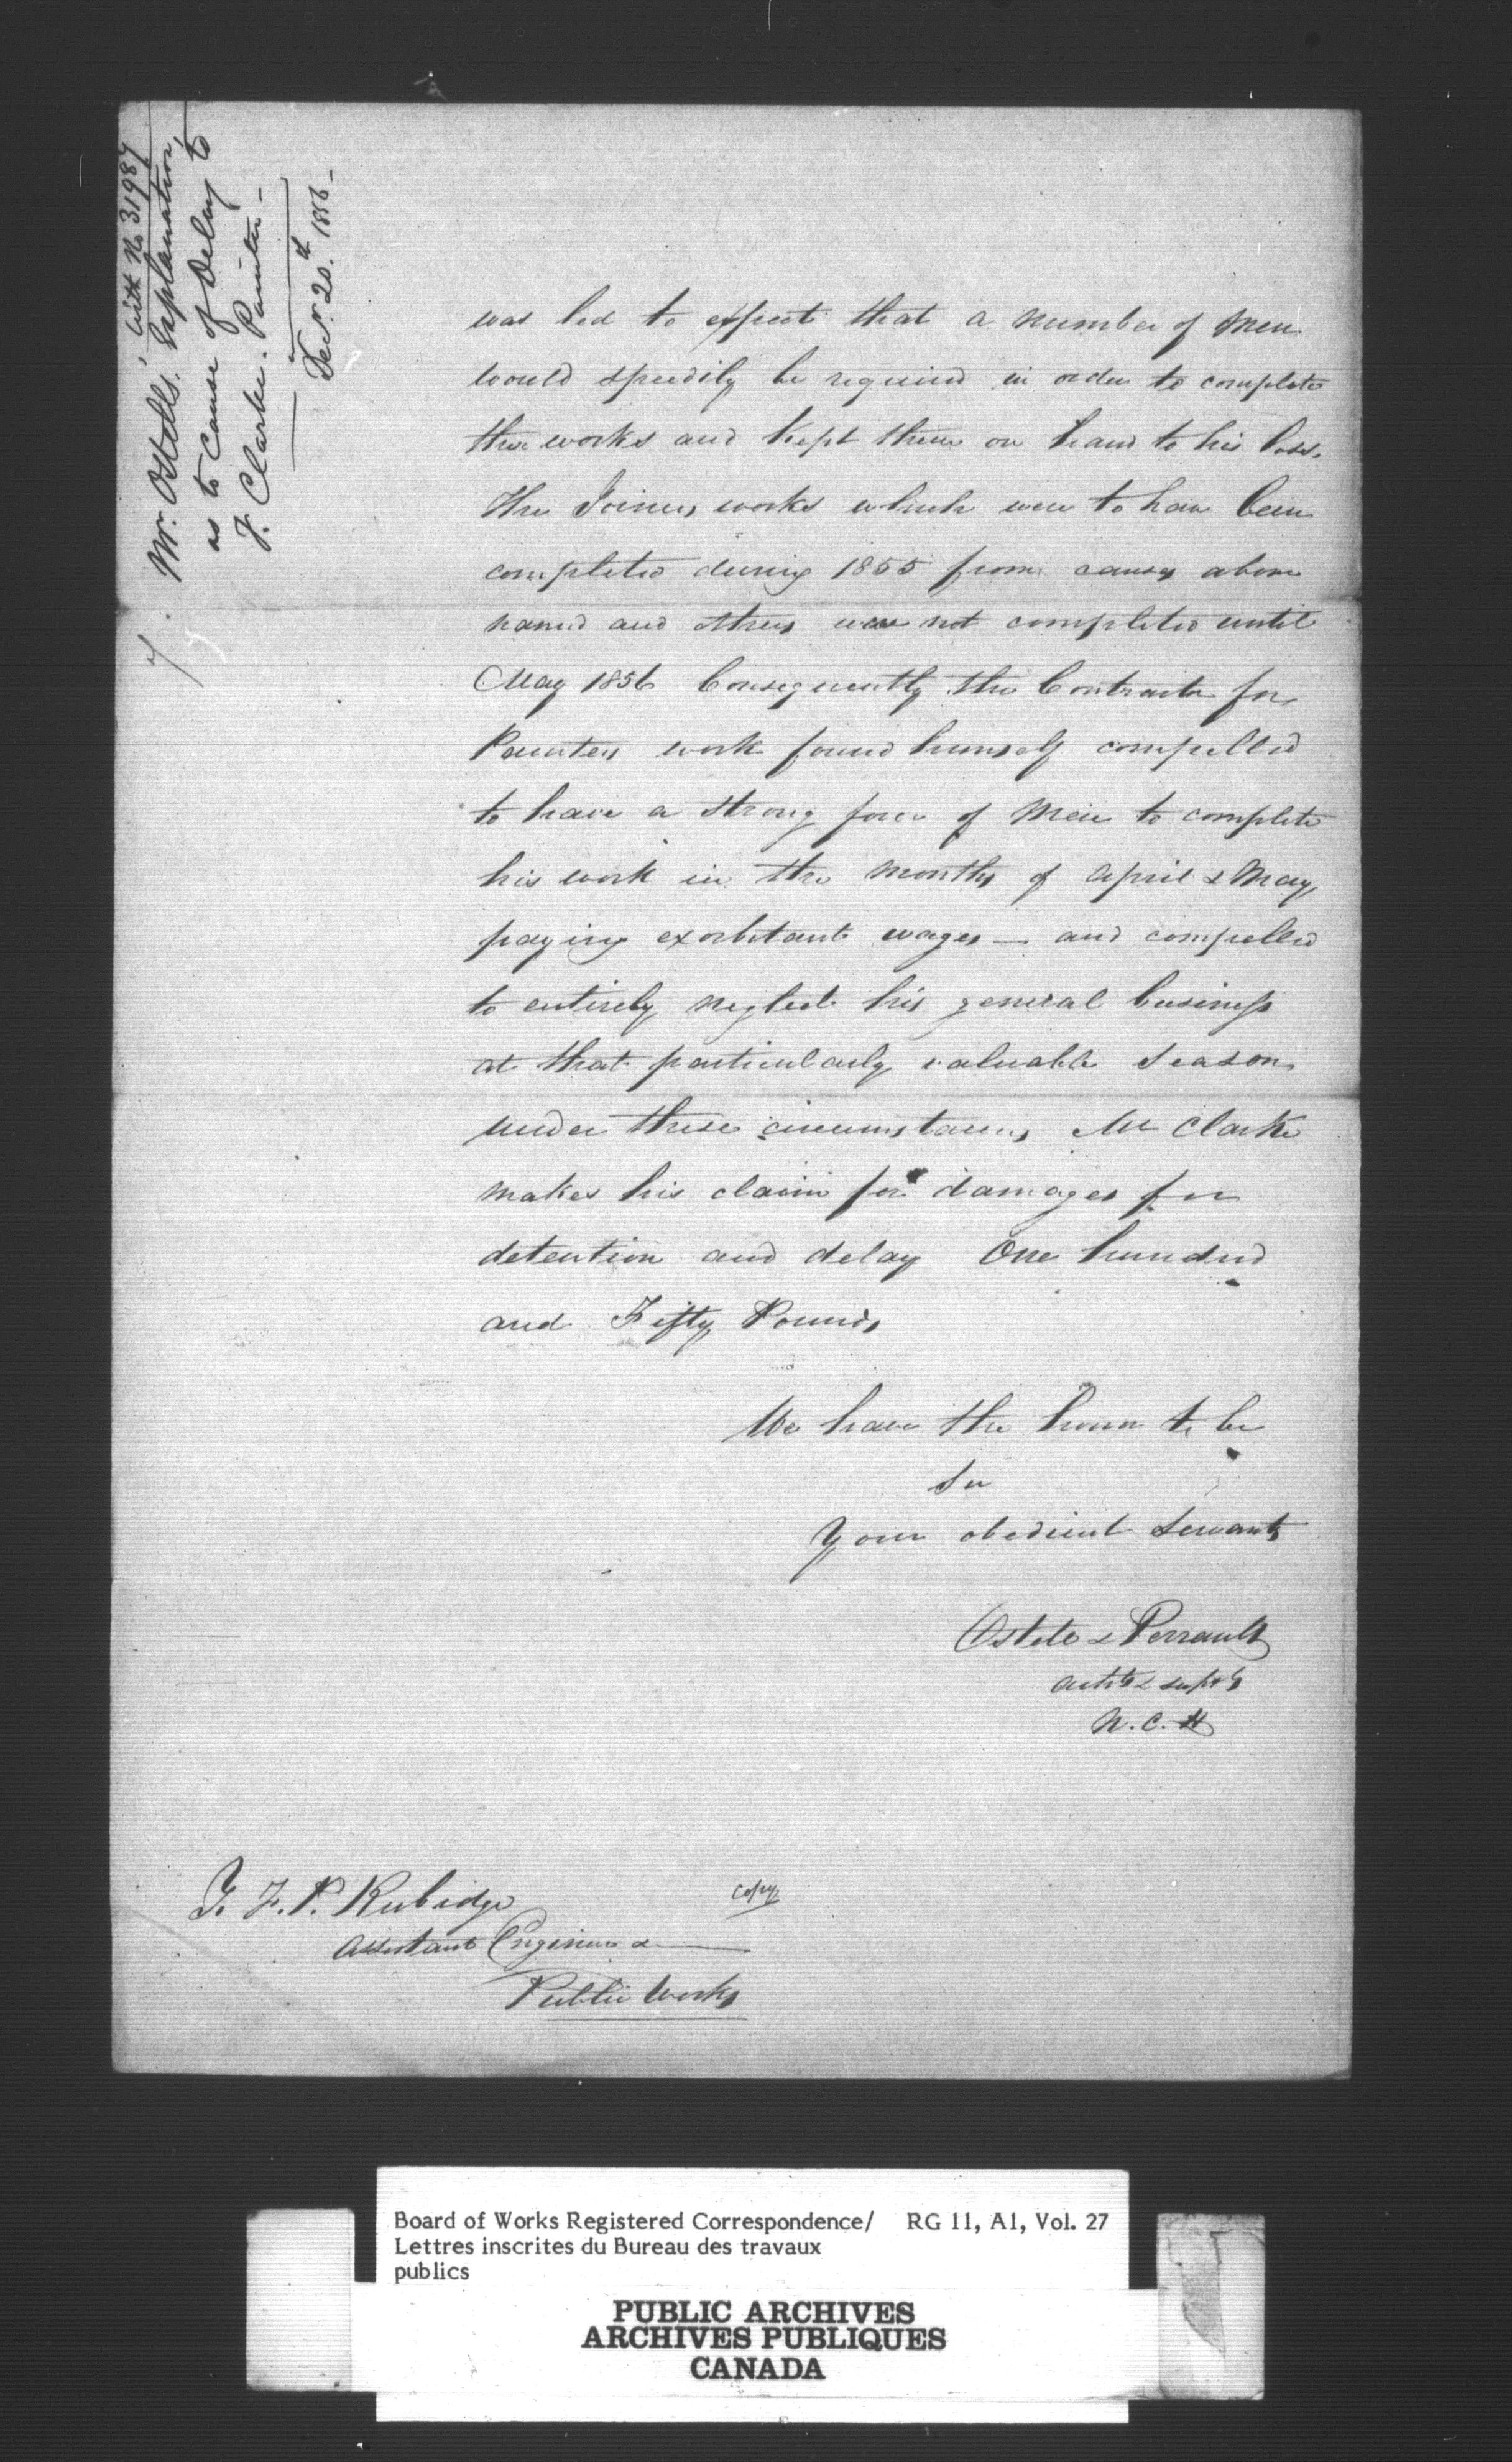 with No 31987
Mr. Ostells. Explanation,
as to Cause of Delay to
F. Clarke. Painter -
Decr. 20th 1856 -
was led to expect that a number of men
would speedily be required in order to complete
the works and kept them on hand to his loss.
The Joiners works which were to have been
completed during 1855 from causes above
named and others were not completed until
May 1856 Consequently the Contractor for
Painters work found himself compelled
to have a strong force of men to complete
his work in the months of April & May,
paying exorbitant wages — and compelled
to entirely neglect his general business
at that particularly valuable season
under these circumstances Mr Clarke
makes his claim for damages for
detention and delay One hundred
and Fifty Pounds
We have the honor to be
Sir
Your obedient Servants
Ostell & Perrault
Archts & Supts
N. C. H
F. P. Rubidge
Copy
Assistant Engineer &
Public Works
Board of Works Registered Correspondence/ RG 11, A1, Vol. 27
Lettres inscrites du Bureau des travaux
publics
PUBLIC ARCHIVES
ARCHIVES PUBLIQUES
CANADA